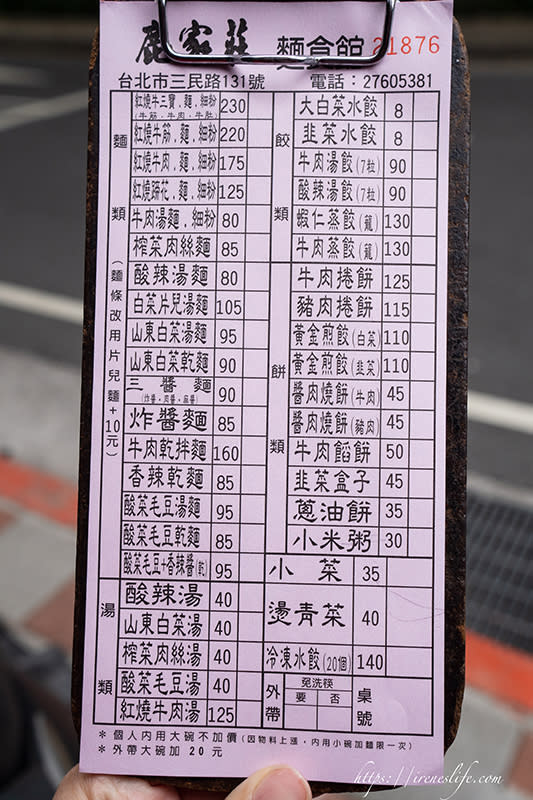 鹿家莊 麵食館 21876
台北市三民路131號 電話：27605381
麵類（麵條改用片兒麵+10元）
紅燒牛三寶．麵．細粉 230
（牛筋．牛肉．牛肚）
紅燒牛筋．麵．細粉 220
紅燒牛肉．麵．細粉 175
紅燒蹄花．麵．細粉 125
牛肉湯麵．細粉 80
榨菜肉絲麵 85
酸辣湯麵 80
白菜片兒湯麵 105
山東白菜湯麵 95
山東白菜乾麵 90
三醬麵 90
（炸醬．肉醬．麻醬）
炸醬麵 85
牛肉乾拌麵 160
香辣乾麵 85
酸菜毛豆湯麵 95
酸菜毛豆乾麵 85
酸菜毛豆+香辣醬(乾) 95
湯類
酸辣湯 40
山東白菜湯 40
榨菜肉絲湯 40
酸菜毛豆湯 40
紅燒牛肉湯 125
餃類
大白菜水餃 8
韭菜水餃 8
牛肉湯餃(7粒) 90
酸辣湯餃(7粒) 90
蝦仁蒸餃(籠) 130
牛肉蒸餃(籠) 130
餅類
牛肉捲餅 125
豬肉捲餅 115
黃金煎餃(白菜) 110
黃金煎餃(韭菜) 110
醬肉燒餅(牛肉) 45
醬肉燒餅(豬肉) 45
牛肉餡餅 50
韭菜盒子 45
蔥油餅 35
小米粥 30
小菜 35
燙青菜 40
冷凍水餃(20個) 140
外帶 免洗筷 要 否 桌號
＊個人內用大碗不加價（因物料上漲，內用小碗加麵限一次）
＊外帶大碗加 20 元
https://ireneslife.com/